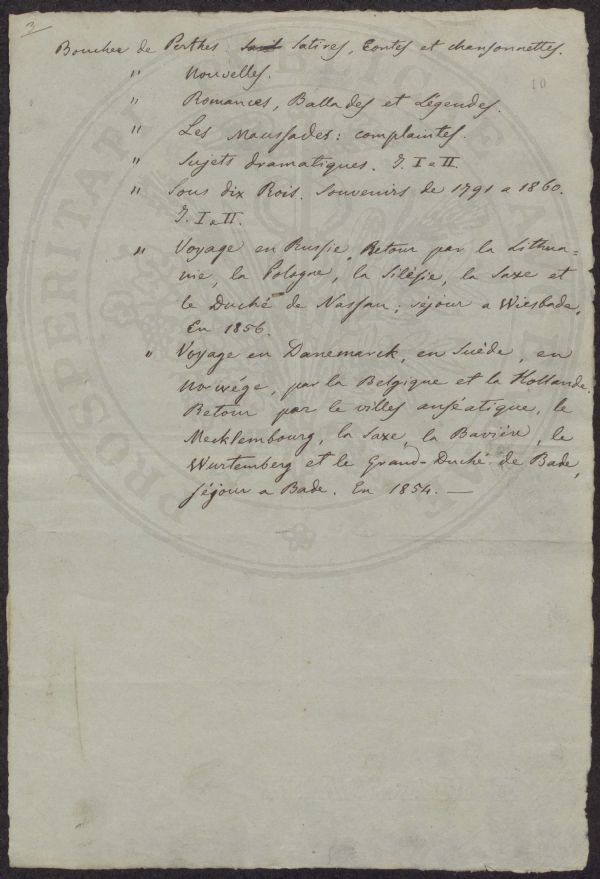 3
Boucher de Perthes. Satires, Contes et chansonnettes.
10
" Nouvelles.
" Romances, Ballades et Légendes.
" Les Maussades: complaintes.
" Sujets dramatiques. T. I e II.
" Sous dix Rois. Souvenirs de 1791 a 1860.
T. I a II.
" Voyage en Russie, Retour par la Lithua=
nie, la Pologne, la Silésie, la Saxe et
le Duché de Nassau; séjour a Wiesbade,
En 1856.
" Voyage en Danemarck, en Suède, en
Norwége, par la Belgique et la Hollande.
Retour par le villes anséatique, le
Mecklembourg, la Saxe, la Bavière, le
Wurtemberg et le Grand-Duché de Bade,
séjour a Bade. En 1854. —
PROSPERITATI PUBLICAE